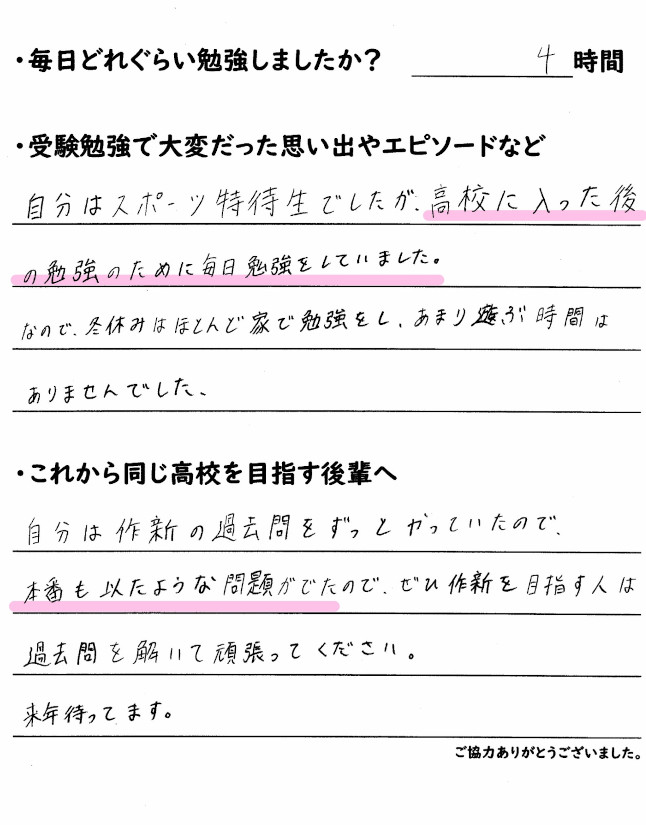 ・毎日どれぐらい勉強しましたか？ 4 時間
・受験勉強で大変だった思い出やエピソードなど
自分はスポーツ特待生でしたが、高校に入った後
の勉強のために毎日勉強をしていました。
なので、冬休みはほとんど家で勉強をし、あまり遊ぶ時間は
ありませんでした、
・これから同じ高校を目指す後輩へ
自分は作新の過去問をずっとやっていたので、
本番も以たような問題がでたので、ぜひ作新を目指す人は
過去問を解いて頑張ってください。
来年待ってます。
ご協力ありがとうございました。